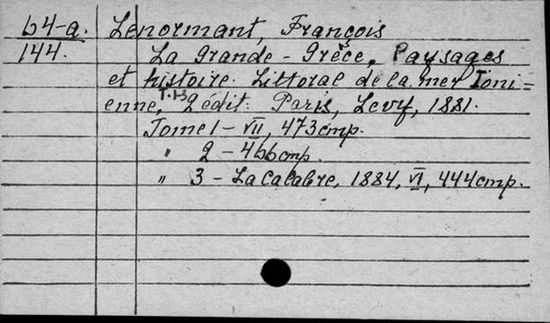 64-a.
144.
Lenormant, François
La Grande-Grèce. Paysages
et histoire. Littoral de la mer Ioni-
enne, T.1-3 2 édit. Paris, Levy, 1881.
Tome 1 - VII, 473 стр.
" 2 - 466 стр.
" 3 - La Calabre, 1884, VI, 444 стр.